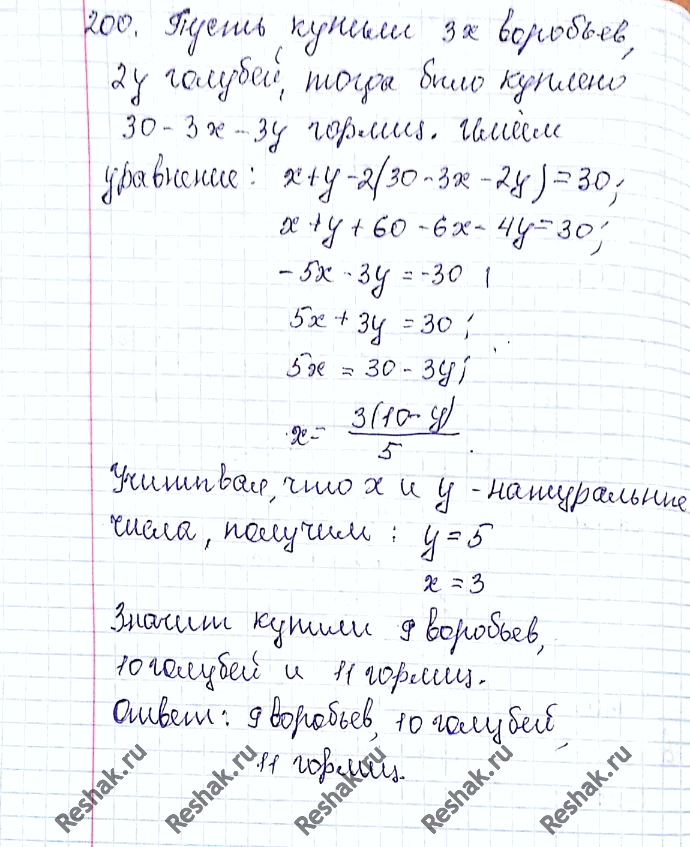 200. Пусть купили 3x воробьев,
2y голубей, тогда было куплено
30 - 3x - 3y горлиц. Имеем
уравнение: x + y - 2(30 - 3x - 2y) = 30;
x + y + 60 - 6x - 4y = 30;
-5x - 3y = -30;
5x + 3y = 30;
5x = 30 - 3y;
x = 3(10 - y)/5.
Учитывая, что x и y - натуральные
числа, получим: y = 5
x = 3
Значит купили 9 воробьев,
10 голубей и 11 горлиц.
Ответ: 9 воробьев, 10 голубей,
11 горлиц.
Reshak.ru Reshak.ru Reshak.ru Reshak.ru Reshak.ru